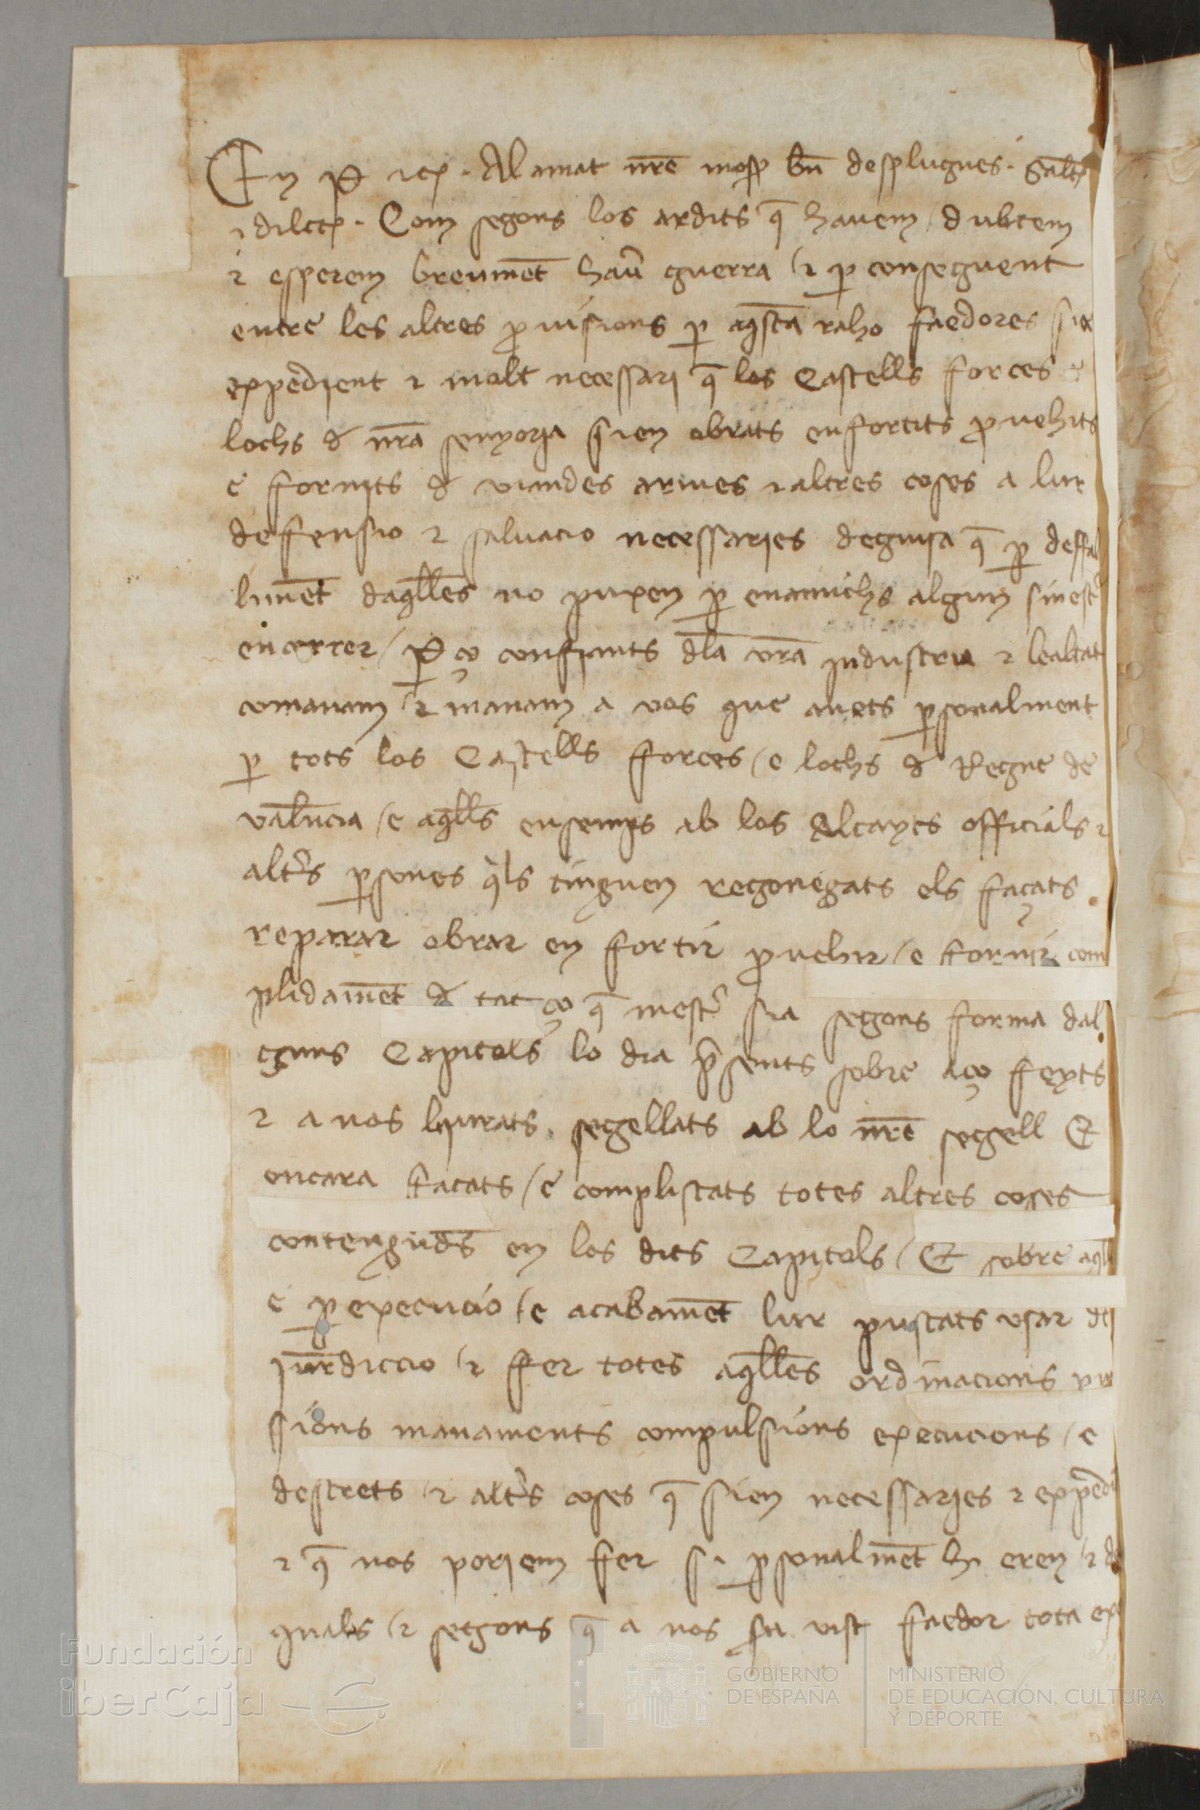 En P etc. Al amat nr̃e mossẽ bñ desplugues. Salt̃
⁊ dilccẽ. Com segons los ardits q̃ havem / dubtem
⁊ esperem breumẽt hav̉ guerra / ⁊ ꝑ conseguent
entre les altres ꝓvisions ꝑ aq̃sta raho faedores sie
expedient ⁊ molt necessari q̃ los Castells forces e
lochs d̉ nr̃a senyoria sien obrats enfortits ꝓvehits
e fornits d̉ viandes armes ⁊ altres coses a lur
deffensio ⁊ salvacio necessaries deguisa q̃ ꝑ deffal
limẽt daq̃lles no puxen ꝑ enamichs algun sinest̉
encorrer / ꝑ ço confiants dla vr̃a industria ⁊ lealtat
comanam / ⁊ manam a vos que anets ꝑsonalment
ꝑ tots los Castells fforces / e lochs d̉ Regne de
valẽncia / e aq̃lls ensemps ab los Alcayts officials ⁊
alt̉s ꝑsones q̉ls tinguen regonegats els façats
reparar obrar en fortir ꝓvehir / e fornir com
plidamẽt d̉ tot ço q̃ mest̉ sia segons forma dal
guns Capitols lo dia p̃sents sobre aço feyts
⁊ a vos liurats. segellats ab lo nr̃e segell Et
encara façats / e compliscats totes altres coses
contengudẽs en los dits Capitols / Et sobre aq̃ll
e ꝑ execucio / e acabamẽt lur puscats usar d̉
jur̃diccio / ⁊ fer totes aq̃lles ordinacions pro
sions manaments compulsions execucions / e
destrets / ⁊ alt̉s coses q̃ sien necessaries ⁊ expedi
⁊ q̃ nos poriem fer si ꝑsonalmẽt hi erem / ⁊ de
quals / ⁊ segons q̃ a vos sera vist faedor tota ex
Fundación
iberCaja
GOBIERNO
DE ESPAÑA
MINISTERIO
DE EDUCACIÓN, CULTURA
Y DEPORTE